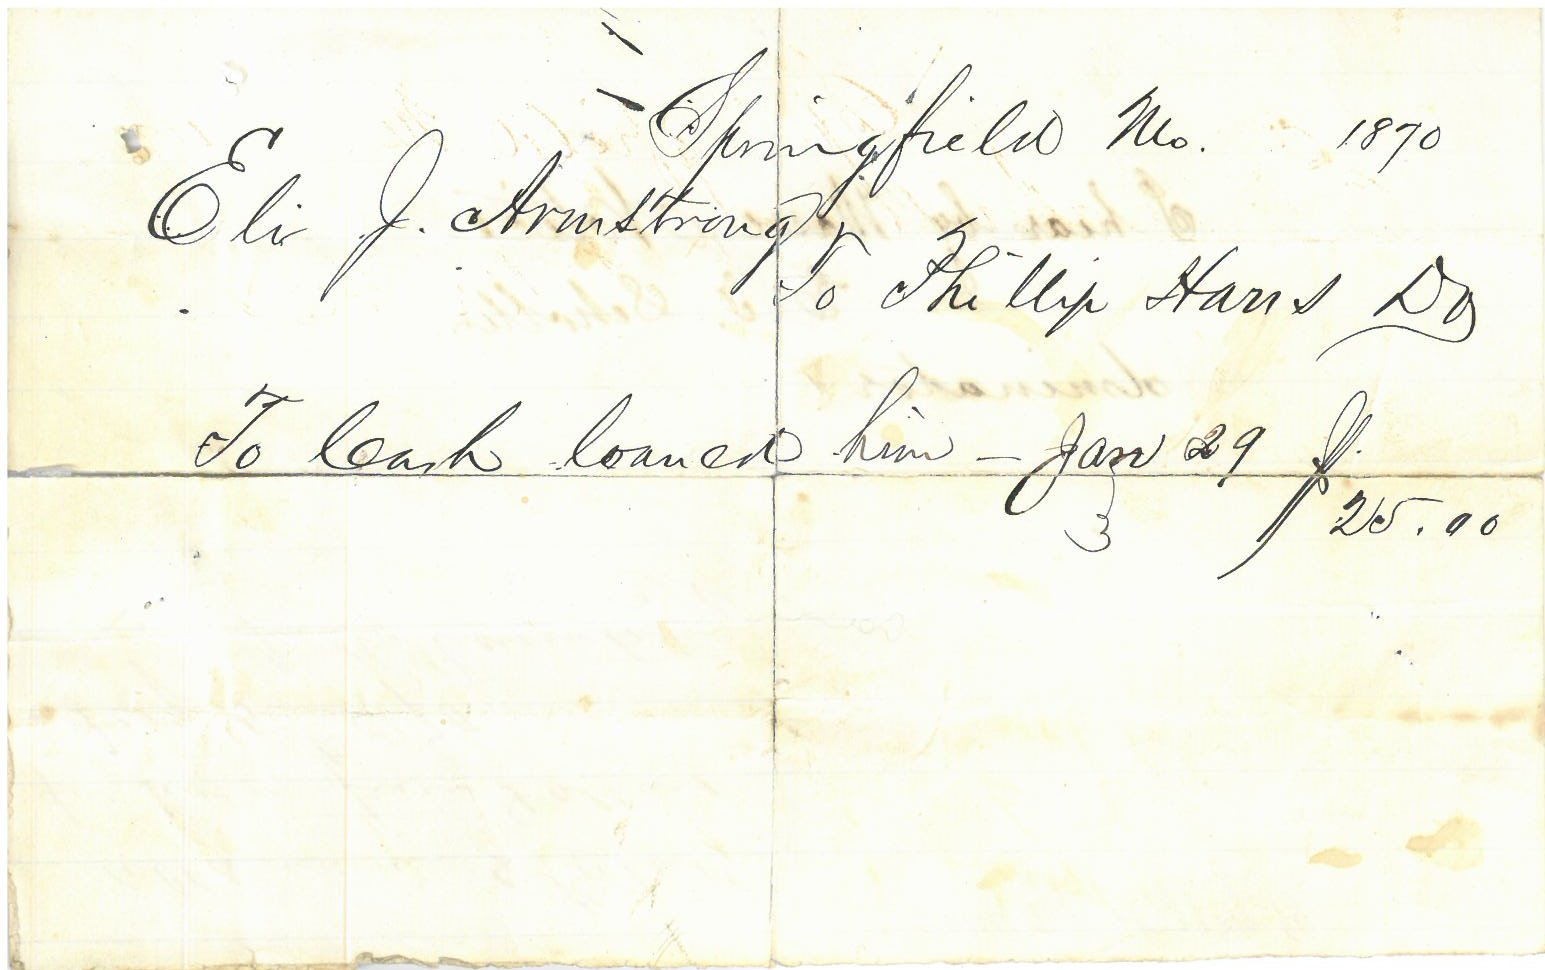 Springfield Mo. 1870
Eli J. Armstrong
To Phillip Harris Dr
To Cash loaned him - Jan 29
25.00